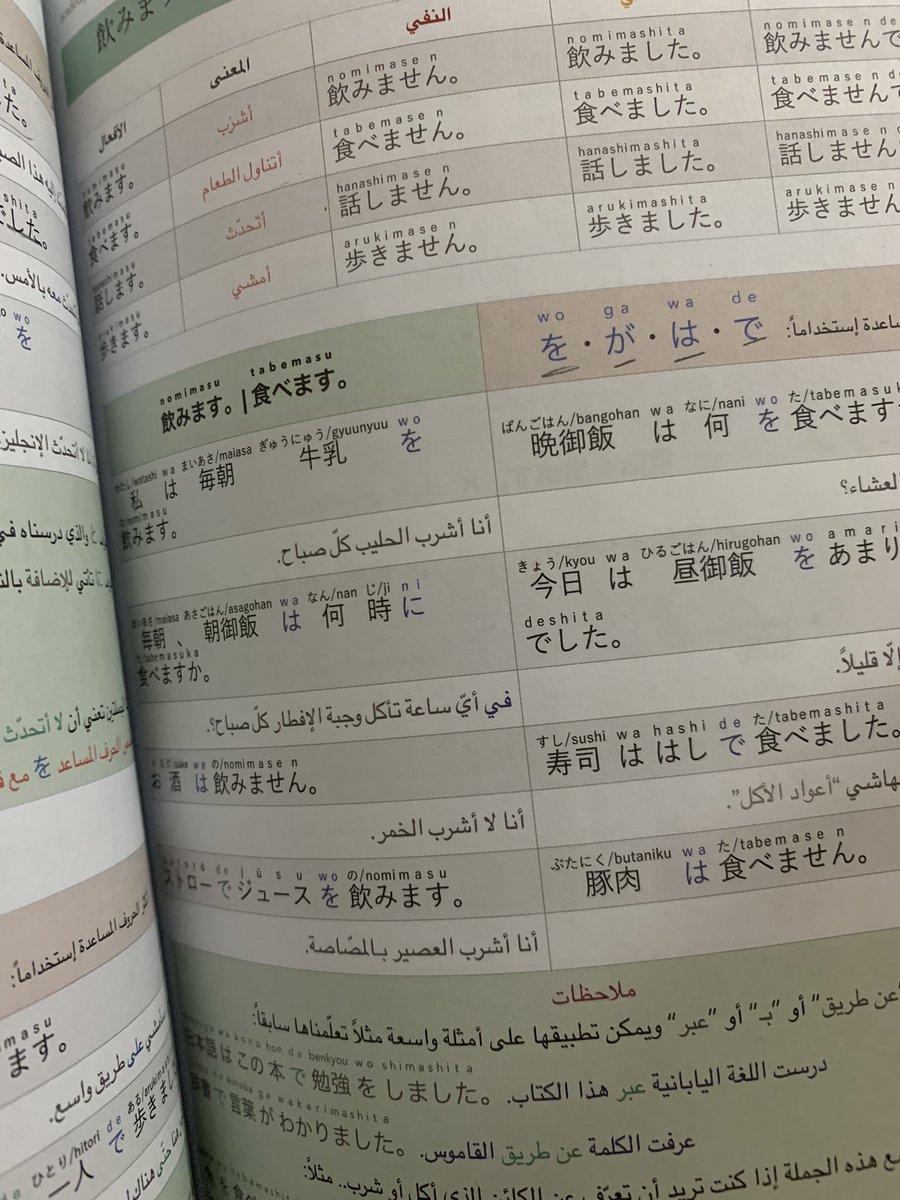 飲みま
النفي
المعنى
الأفعال
nomimase n
飲みません。
nomimashita
飲みました。
nomimasen de
飲みませんで
أشرَب
nomimasu
飲みます。
tabemase n
食べません。
tabemashita
食べました。
tabemasen de
食べませんで
أتناول الطعام
tabemasu
食べます。
hanashimase n
話しません。
hanashimashita
話しました。
hanashimase n de
話しません
أتحدّث
hanashimasu
話します。
arukimase n
歩きません。
arukimashita
歩きました。
arukimase n
歩きません
أمشي
arukimasu
歩きます。
wo ga wa de
を・が・は・で
ساعدة إستخداماً:
nomimasu tabemasu
飲みます。|食べます。
わたし/watashi wa まいあさ/maiasa ぎゅうにゅう/gyuunyuu wo
私 は 毎朝 牛乳 を
の/nomimasu
飲みます。
أنا أشرب الحليب كلّ صباح.
ばんごはん/bangohan wa なに/nani wo た/tabemasuk
晩御飯 は 何 を 食べます
العشاء؟
まいあさ/maiasa あさごはん/asagohan wa なん/nan じ/ji ni
毎朝、朝御飯 は 何 時 に
た/tabemasuka
食べますか。
في أيّ ساعة تأكل وجبة الإفطار كلّ صباح؟.
きょう/kyou wa ひるごはん/hirugohan wo amari
今日 は 昼御飯 を あまり
deshita
でした。
إلّا قليلاً.
sake wa の/nomimase n
お酒は飲みません。
أنا لا أشرب الخمر.
すし/sushi wa hashi de た/tabemashita
寿司 は はし で 食べました。
هاشي “أعواد الأكل”.
sutoro de jūsu wo の/nomimasu
ストローでジュースを飲みます。
أنا أشرب العصير بالمصّاصة.
ぶたにく/butaniku wa た/tabemase n
豚肉 は 食べません。
ملاحظات
“عن طريق” أو “بـ” أو “عبر” ويمكن تطبيقها على أمثلة واسعة مثلاً تعلّمناها سابقاً:
wa kono hon de benkyou wo shimashita
日本語はこの本で勉強をしました。
درست اللغة اليابانية عبر هذا الكتاب.
de kotoba ga wakarimashita
で言葉がわかりました。
عرفت الكلمة عن طريق القاموس.
هذه الجملة إذا كنت تريد أن تعرّف عن الكائن الذي أكل أو شرب.. مثلاً:
た。
shita
した。
معه بالأمس.
wo
を
لا أتحدّث الإنجليز
والذي درسناه في
تأتي للإضافة بالن
تعني أن لا أتحدّث
الحرف المساعد を مع ف
الحروف المساعدة إستخداماً:
masu
ます。
على طريق واسع.
de ひとり/hitori de ある/arukimas
一人 で 歩きまし